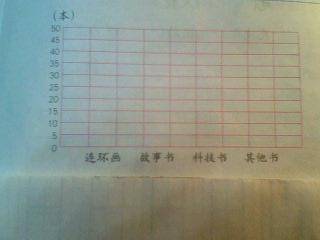 (本)
50
45
40
35
30
25
20
15
10
5
0
连环画 故事书 科技书 其他书